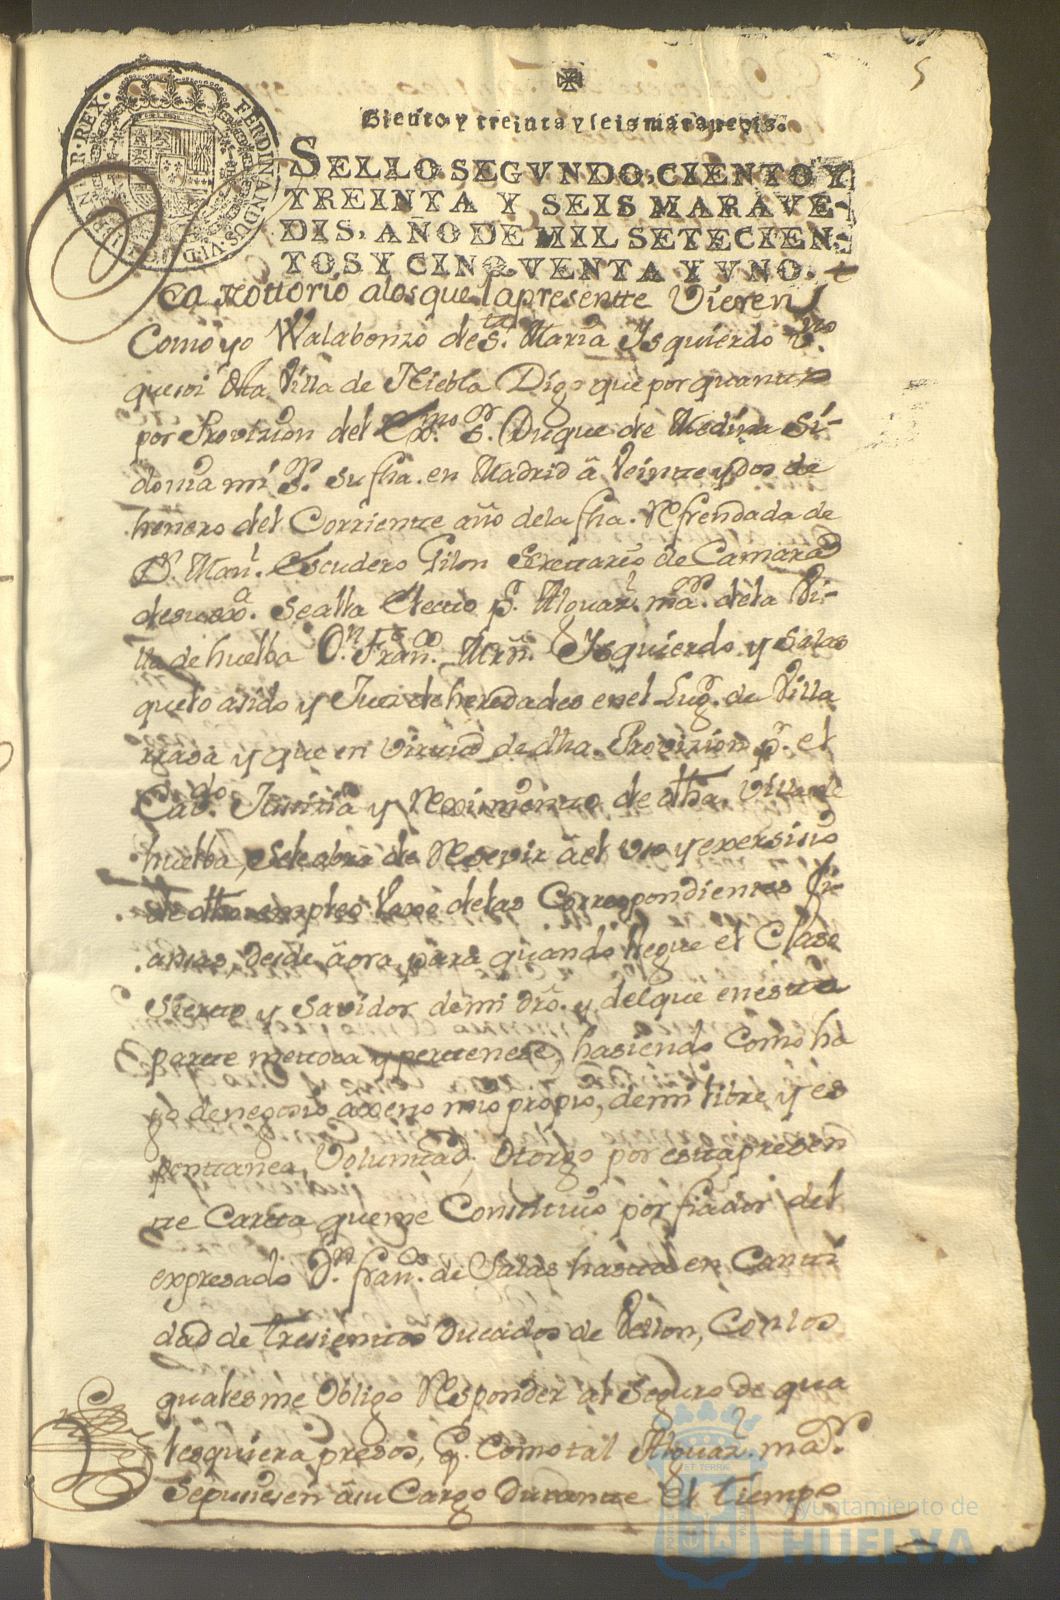 5
Siento y treinta y seis maravedis.
SELLO SEGVNDO, CIENTO Y
TREINTA Y SEIS MARAVE-
DIS, AÑO DE MIL SETECIEN-
TOS Y CINQVENTA Y VNO.
FERDINANDUS VI D G
REX
Sea nottorio a los que la presentte Vieren
Como yo Walabonzo de Sta. Maria Ysquierdo Vno
que soi Dtta Villa de Niebla Digo que por quantto
por Provizion del Exmo. Sr. Duque de Medina Si-
donia mi Sr. su fha. en Madrid â Veintte y dos de
henero del Corrientte año de la fha. Refrendada de
Dn. Manl. Escudero Gilon Secrettario de Camara
de su exa. se alla Electto pr. Alguazl. mar. de la Vi-
lla de huelba Dn. Franco. Mrñ. Ysquierdo y Salas
que lo a sido y Juez de heredades en el Lugr. de Villa
rrasa y que en virttud de dtha. Provizion pr. el
Cavdo. Justtizia y Reximientto de dtha. Villa de
huelba, se le abra de Resevir â el uso y exersisio
de dtho. empleo vaxo de las Correspondienttes fi-
anzas, desde âora para quando llegue el Caso
Siertto y Savidor de mi dro. y del que en estta
partte me ttoca y perttenese, hasiendo Como ha
go de negosio axeno mio propio, de mi libre y es
ponttanea Volunttad, Otorgo por estta presen
tte Cartta que me Constituio por fiador del
expresado Dn. Franco. de Salas hastta en Cantti
dad de tresienttos Ducados de Vellon, Con los
quales me Obligo Responder al Seguro de qua
lesquiera presos, q. Como tal Alguazl. mar.
se pusiesen â su Cargo Durantte el Tiempo
Ayuntamiento de
HUELVA